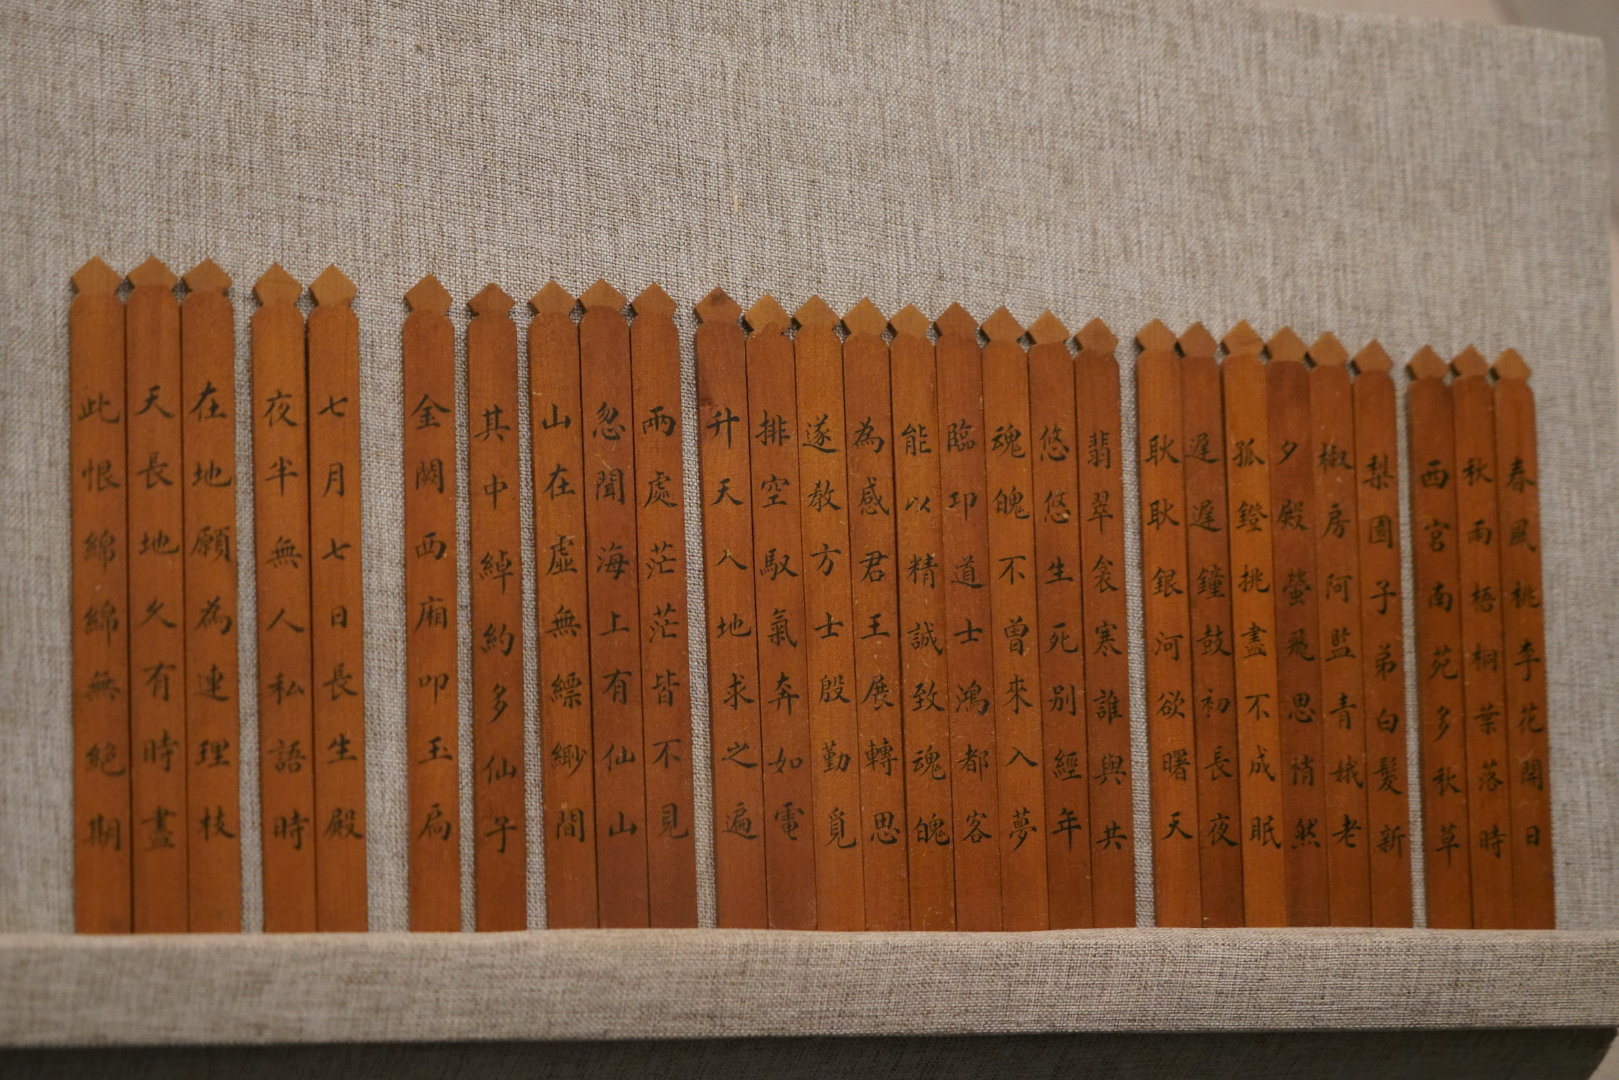 春風桃李花開日
秋雨梧桐葉落時
西宮南苑多秋草
梨園子弟白髮新
椒房阿監青娥老
夕殿螢飛思悄然
孤鐙挑盡不成眠
遲遲鐘鼓初長夜
耿耿銀河欲曙天
翡翠衾寒誰與共
悠悠生死別經年
魂魄不曾來入夢
臨邛道士鴻都客
能以精誠致魂魄
為感君王展轉思
遂教方士殷勤覓
排空馭氣奔如電
升天入地求之遍
兩處茫茫皆不見
忽聞海上有仙山
山在虛無縹緲間
其中綽約多仙子
金闕西廂叩玉扃
七月七日長生殿
夜半無人私語時
在地願為連理枝
天長地久有時盡
此恨綿綿無絕期